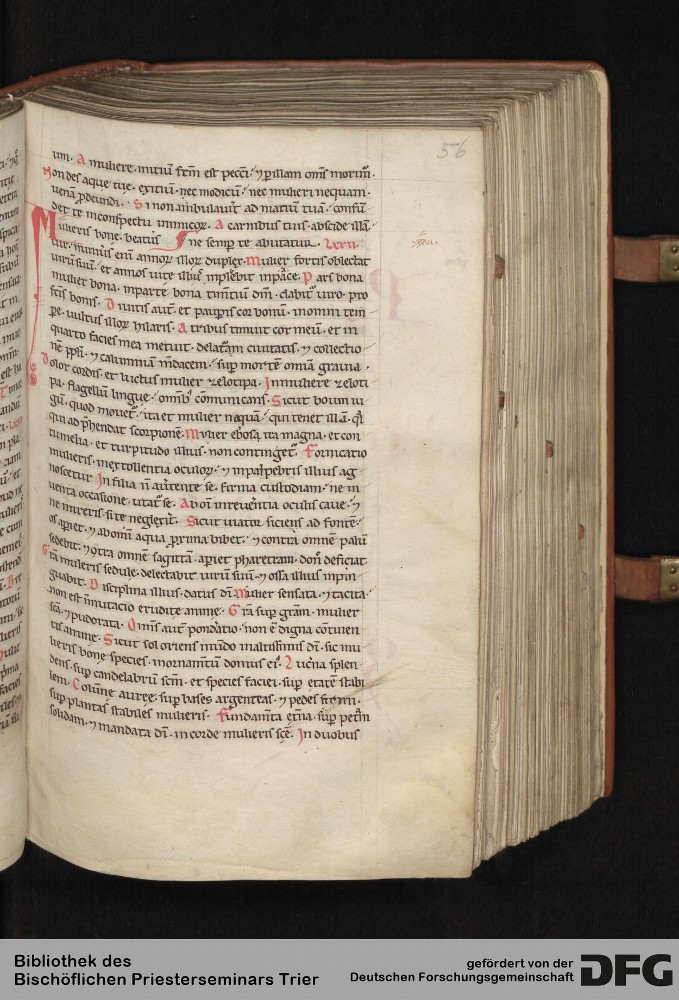 56
um. A muliere. initiū factū est peccī. ⁊ p illam om̄s morim̄.
Non des aque tue. exitiū. nec modicū. nec mulieri nequam.
veniā pdeundi. Si non ambulauit̄ ad manū tuā. confū
det te in conspectu inimicoꝝ. A carnibus tuis. abscide illā.
ne semp te abutatur. lxxii.
Mulieris bone. beatus
uir. numerus enī annoꝝ illoꝝ duplex. Mulier fortis oblectat
uirū suū. et annos uite illius implebit in pace. Pars bona
mulier bona. in parte bona timentiū dm̄. dabit̄ uiro. pro
factis bonis. Diuitis aut̄. et paupis cor bonū. in omni tem
pe. uultus illoꝝ hilaris. A tribus timuit cor meū. et in
quarto facies mea metuit. delaturam ciuitatis. ⁊ collectio
nē ppli. ⁊ calumniā mendacem. sup morte omnia grauia.
Dolor cordis. et luctus mulier zelotipa. In muliere zeloti
pa. flagellū lingue. omnibꝫ cōmunicans. Sicut boum iu
gū. quod mouet̄. ita et mulier nequā. qui tenet illā. q̄si
qui adphendat scorpionē. Mulier ebriosa. ira magna. et con
tumelia. et turpitudo illius. non contingetur. Fornicatio
mulieris. in extollentia oculoꝝ. ⁊ in palpebris illius ag
noscetur. In filia n̄ auertente se. firma custodiam. ne in
uenta occasione. utat̄ se. Ab om̄i irreuerentia oculis caue. ⁊
ne mireris. si te neglexit̄. Sicut uiator siciens ad fontē.
os apiet. ⁊ ab omni aqua pxima bibet. ⁊ contra omnē palū
sedebit. ⁊ 9tra omnē sagittā. apiet pharetram. donec deficiat.
Gr̄a mulieris sedule. delectabit uirū suū. ⁊ ossa illius inpin
guabit. Disciplina illius. datus dī. Mulier sensata. ⁊ tacita.
non est inmutacio erudite anime. Gr̄a sup grām. mulier
scā. ⁊ pudorata. Omnis aut̄ ponderatio. non ē digna cōtinen
tis anime. Sicut sol oriens mūdo in altissimis dī. sic mu
lieris bone species. in ornamentū domus eiꝰ. Lucerna splen
dens. sup candelabrū scm̄. et species faciei. sup etatē stabi
lem. Colūne auree. sup bases argenteas. ⁊ pedes firmi.
sup plantas stabiles mulieris. Fundamenta etn̄a. sup petrā
solidam. ⁊ mandata dī. in corde mulieris scē. In duobus
Bibliothek des
Bischöflichen Priesterseminars Trier
gefördert von der
Deutschen Forschungsgemeinschaft
DFG